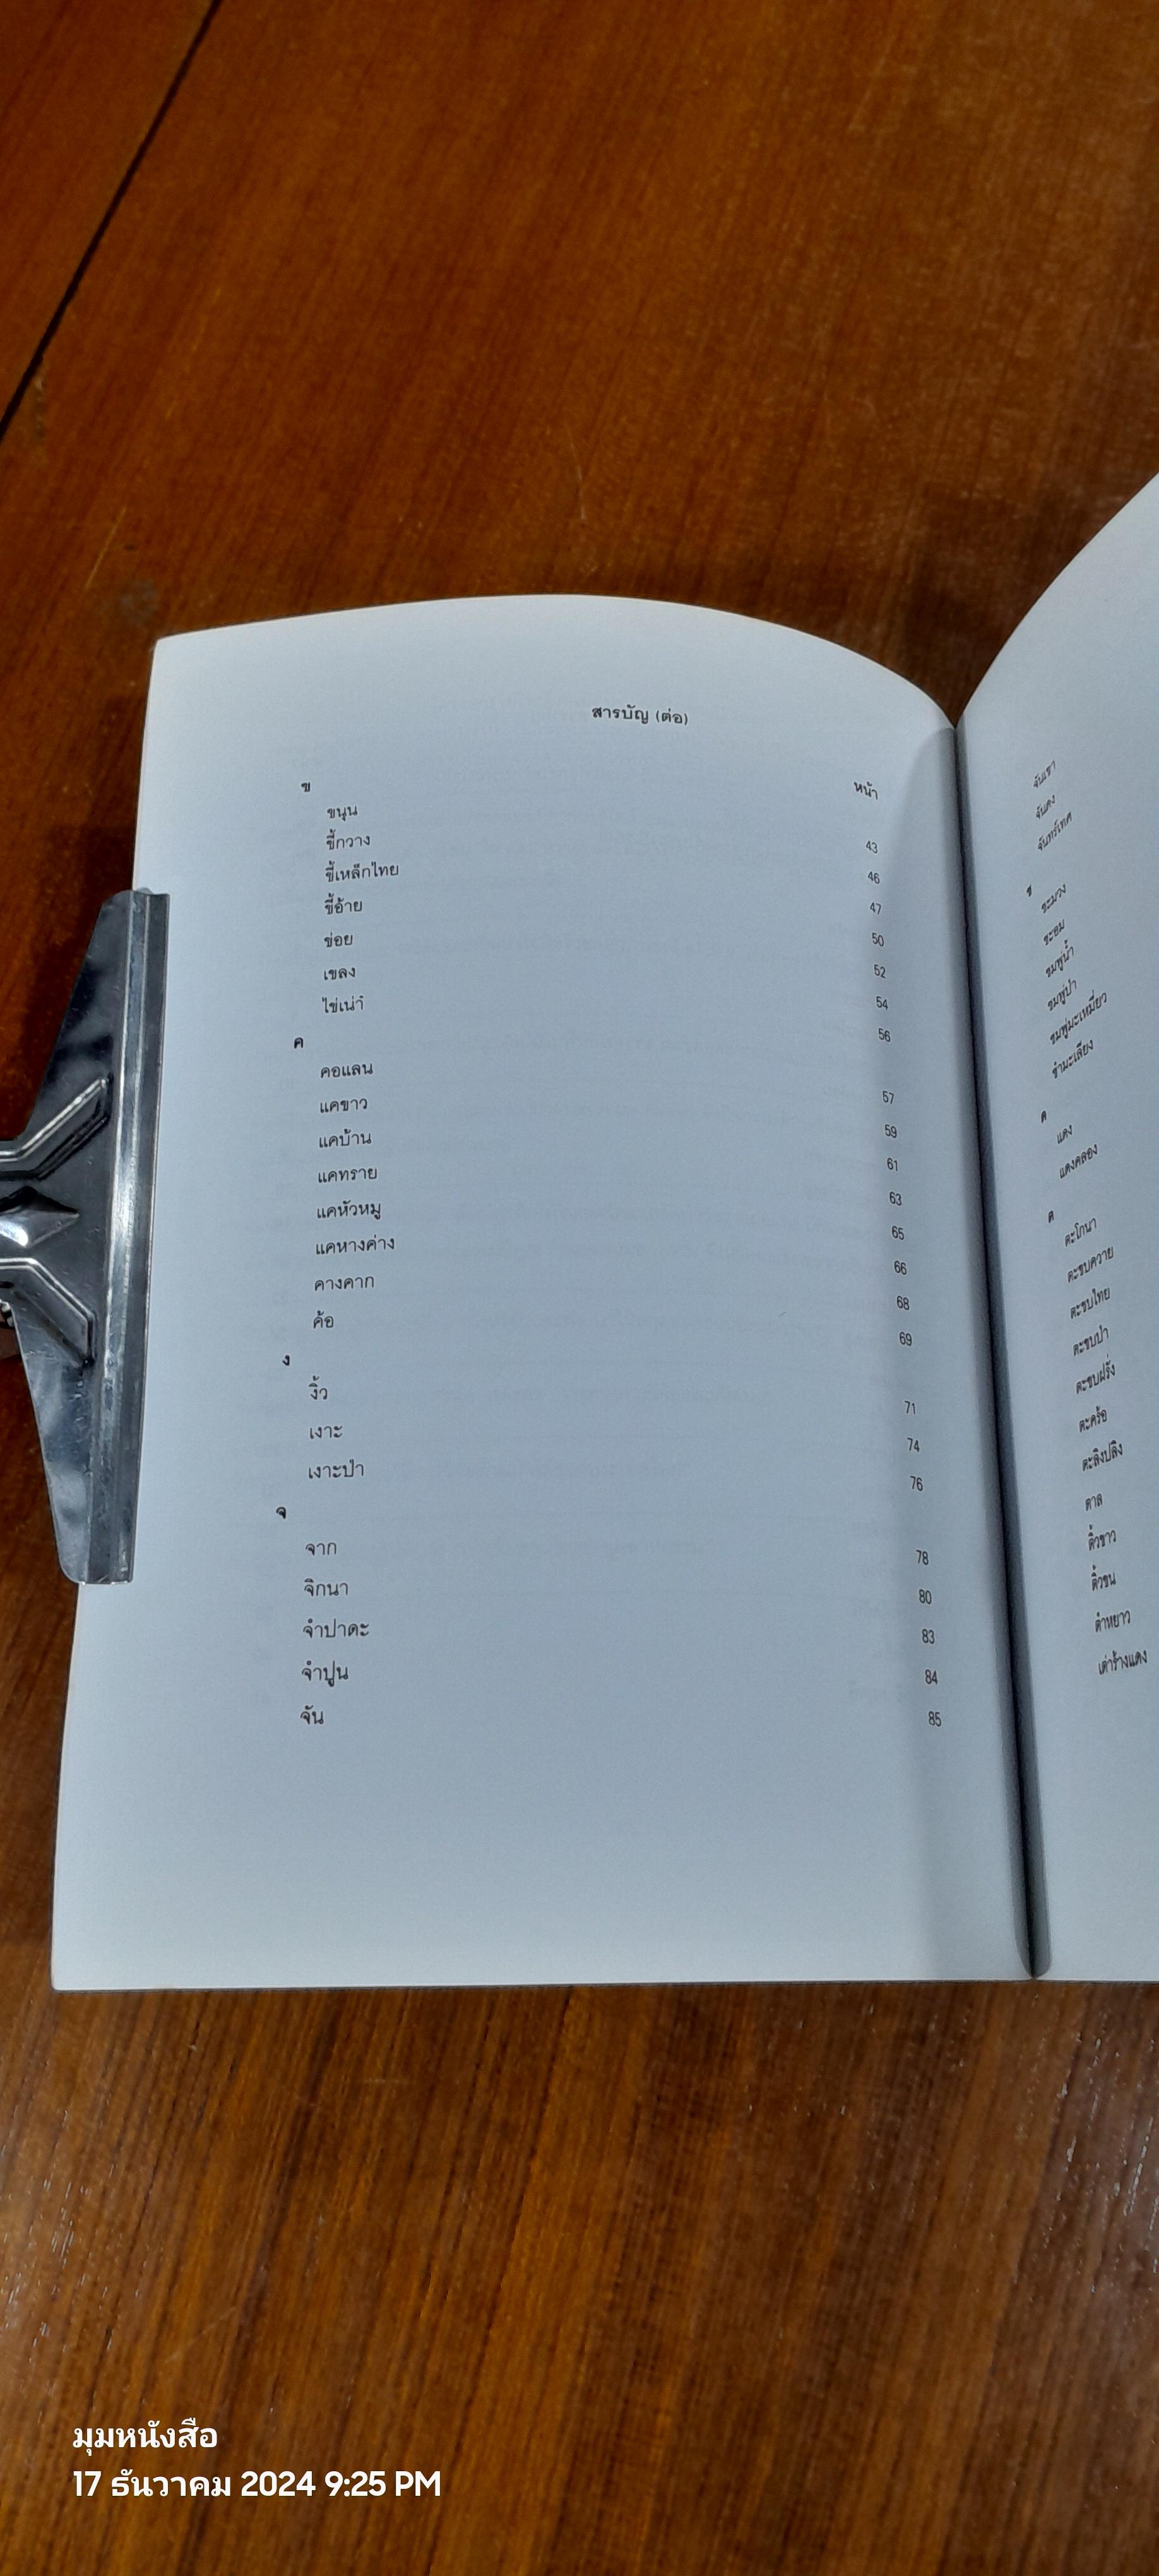 สารบัญ (ต่อ)
ข หน้า
ขนุน 43
ขี้กวาง 46
ขี้เหล็กไทย 47
ขี้อ้าย 50
ข่อย 52
เขลง 54
ไข่เน่า 56
ค
คอแลน 57
แคขาว 59
แคบ้าน 61
แคทราย 63
แคหัวหมู 65
แคหางค่าง 66
คางคาก 68
ค้อ 69
ง
งิ้ว 71
เงาะ 74
เงาะป่า 76
จ
จาก 78
จิกนา 80
จำปาดะ 83
จำปูน 84
จัน 85
จันเขา
จันดง
จันทร์เทศ
ช
ชะมวง
ชะอม
ชมพู่น้ำ
ชมพู่ป่า
ชมพู่มะเหมี่ยว
ชำมะเลียง
ด
แดง
แดงคลอง
ต
ตะโกนา
ตะขบควาย
ตะขบไทย
ตะขบป่า
ตะขบฝรั่ง
ตะคร้อ
ตะลิงปลิง
ตาล
ติ้วขาว
ติ้วขน
ตำหยาว
เต่าร้างแดง
มุมหนังสือ
17 ธันวาคม 2024 9:25 PM